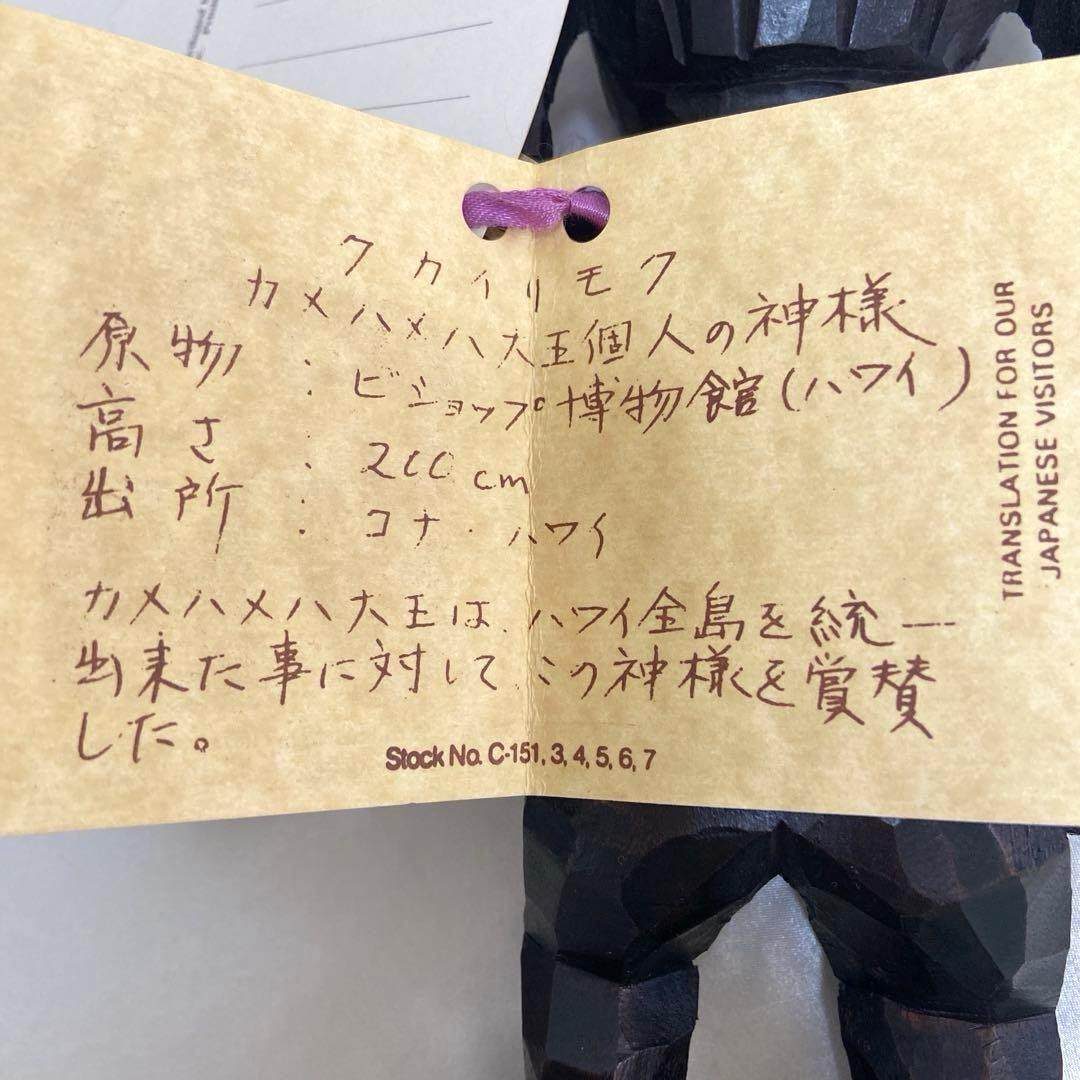 クカイリモク
カメハメハ大王個人の神様
原物：ビショップ博物館（ハワイ）
高さ：200cm
出所：コナ・ハワイ
カメハメハ大王は、ハワイ全島を統一
出来た事に対してこの神様を賞賛
した。
Stock No. C-151, 3, 4, 5, 6, 7
TRANSLATION FOR OUR
JAPANESE VISITORS